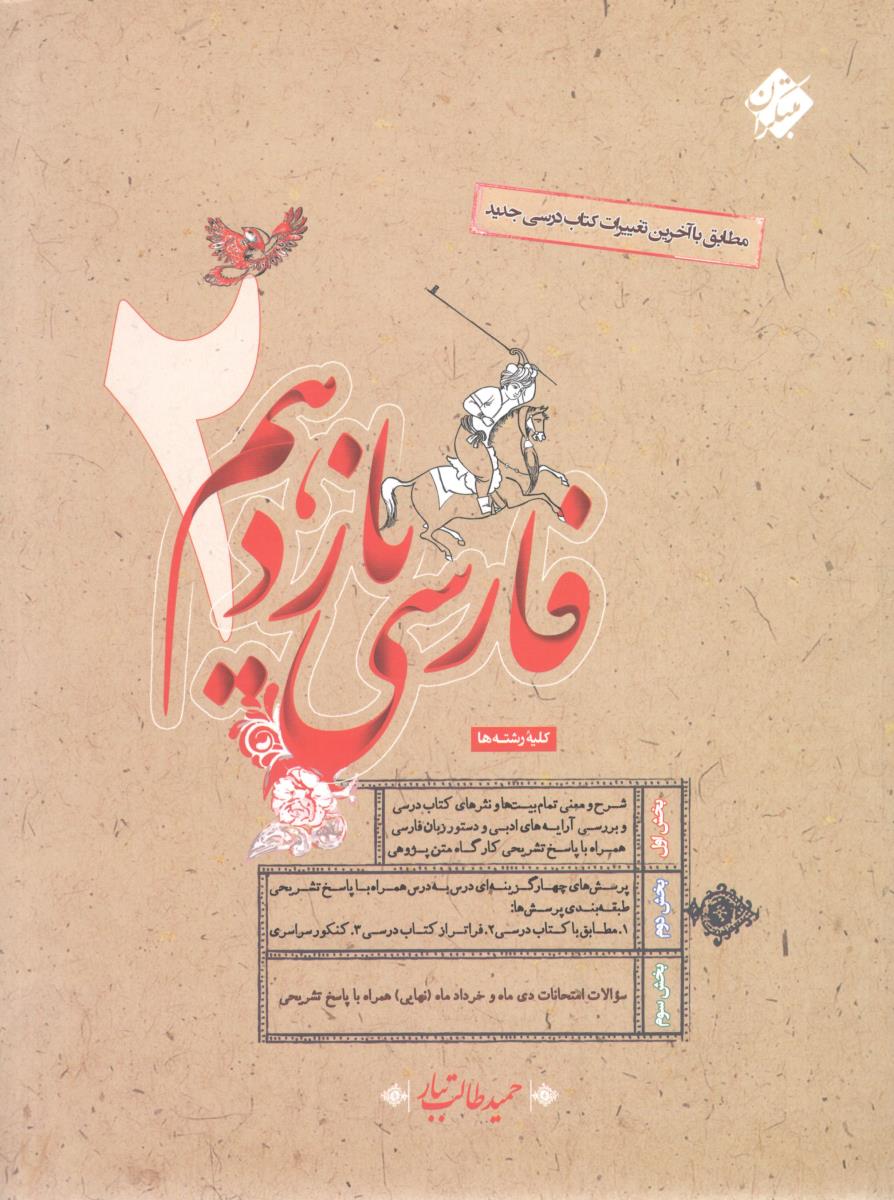 مبتکران
مطابق با آخرین تغییرات کتاب درسی جدید
فارسی یازدهم ۲
کلیهٔ رشته‌ها
بخش اول
شرح و معنی تمام بیت‌ها و نثرهای کتاب درسی
و بررسی آرایه‌های ادبی و دستور زبان فارسی
همراه با پاسخ تشریحی کارگاه متن پژوهی
بخش دوم
پرسش‌های چهارگزینه‌ای درس به درس همراه با پاسخ تشریحی
طبقه‌بندی پرسش‌ها:
۱. مطابق با کتاب درسی ۲. فراتر از کتاب درسی ۳. کنکور سراسری
بخش سوم
سؤالات امتحانات دی ماه و خرداد ماه (نهایی) همراه با پاسخ تشریحی
حمید طالب تبار